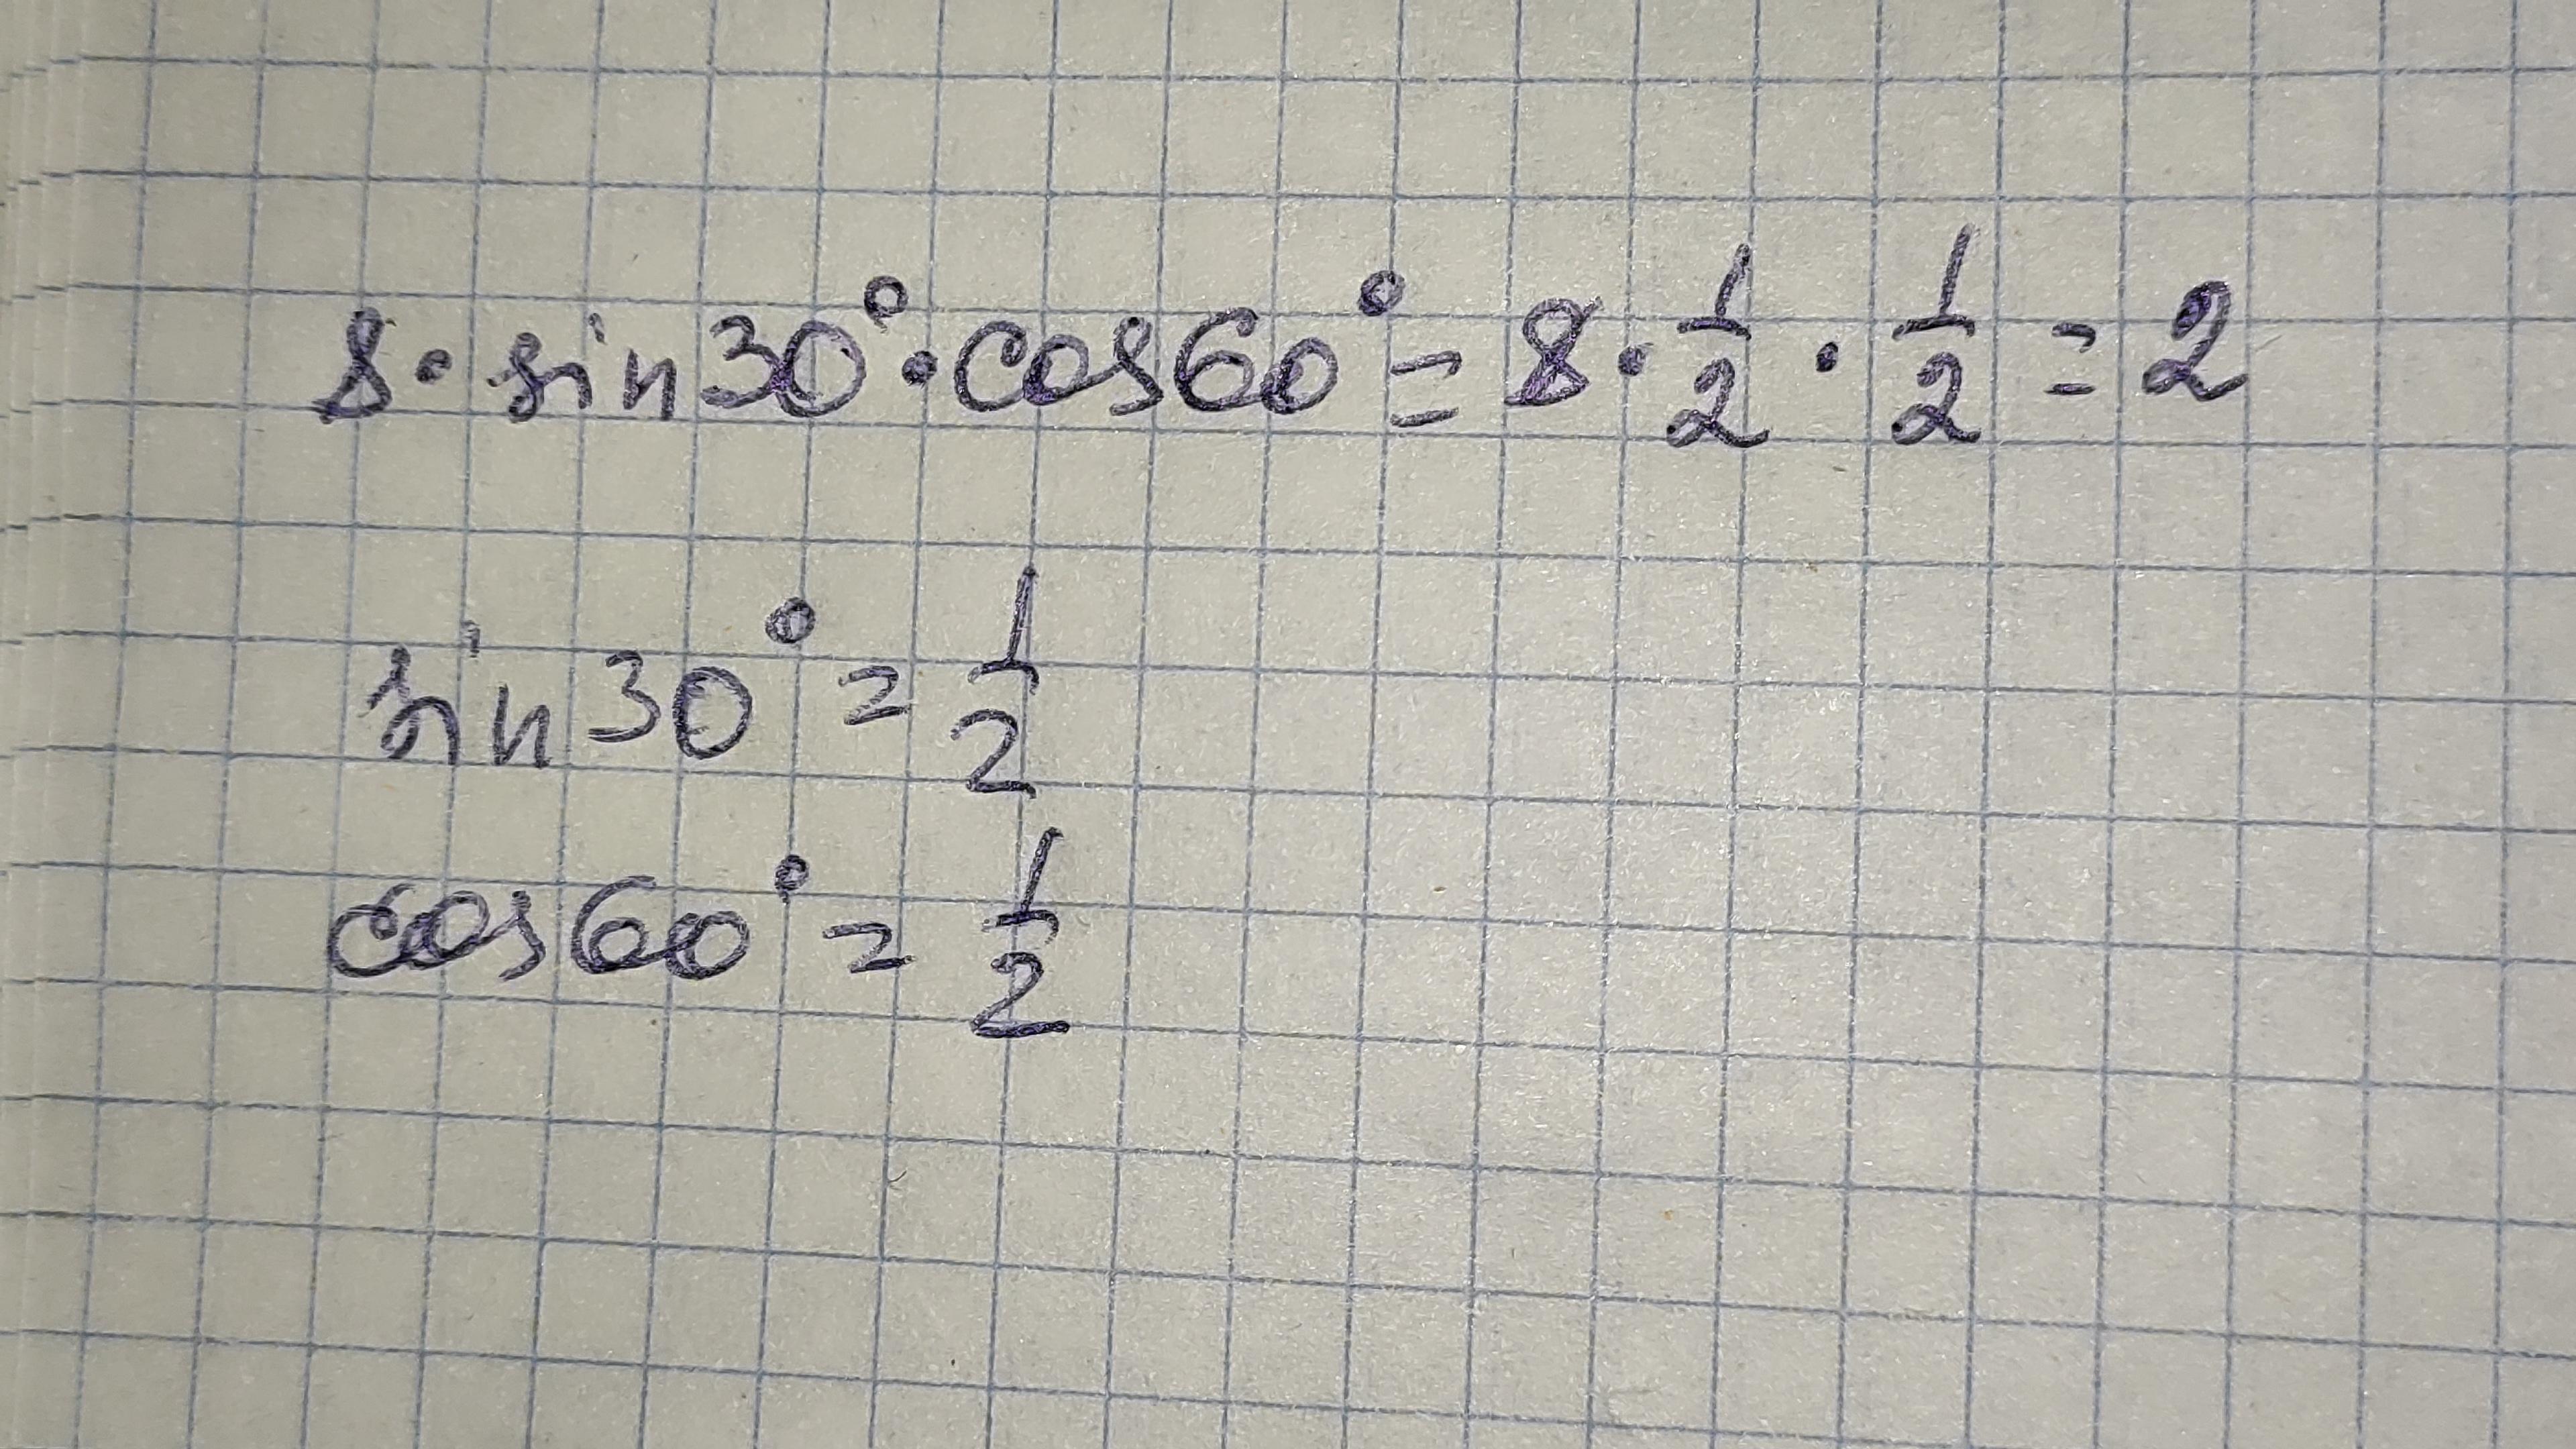 8 · sin 30° · cos 60° = 8 · 1/2 · 1/2 = 2
sin 30° = 1/2
cos 60° = 1/2